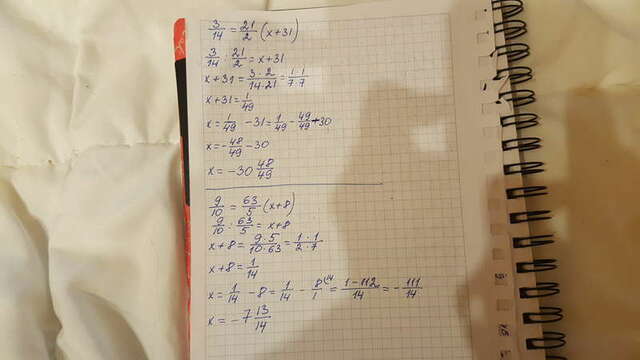 3/14 = 21/2 (x+31)
3/14 : 21/2 = x+31
x+31 = 3/14 · 2/21 = 1·1/7·7
x+31 = 1/49
x = 1/49 - 31 = 1/49 - 49/49 - 30
x = -48/49 - 30
x = -30 48/49
9/10 = 63/5 (x+8)
9/10 : 63/5 = x+8
x+8 = 9/10 · 5/63 = 1/2 · 1/7
x+8 = 1/14
x = 1/14 - 8 = 1/14 - 8/1 = 1-112/14 = -111/14
x = -7 13/14